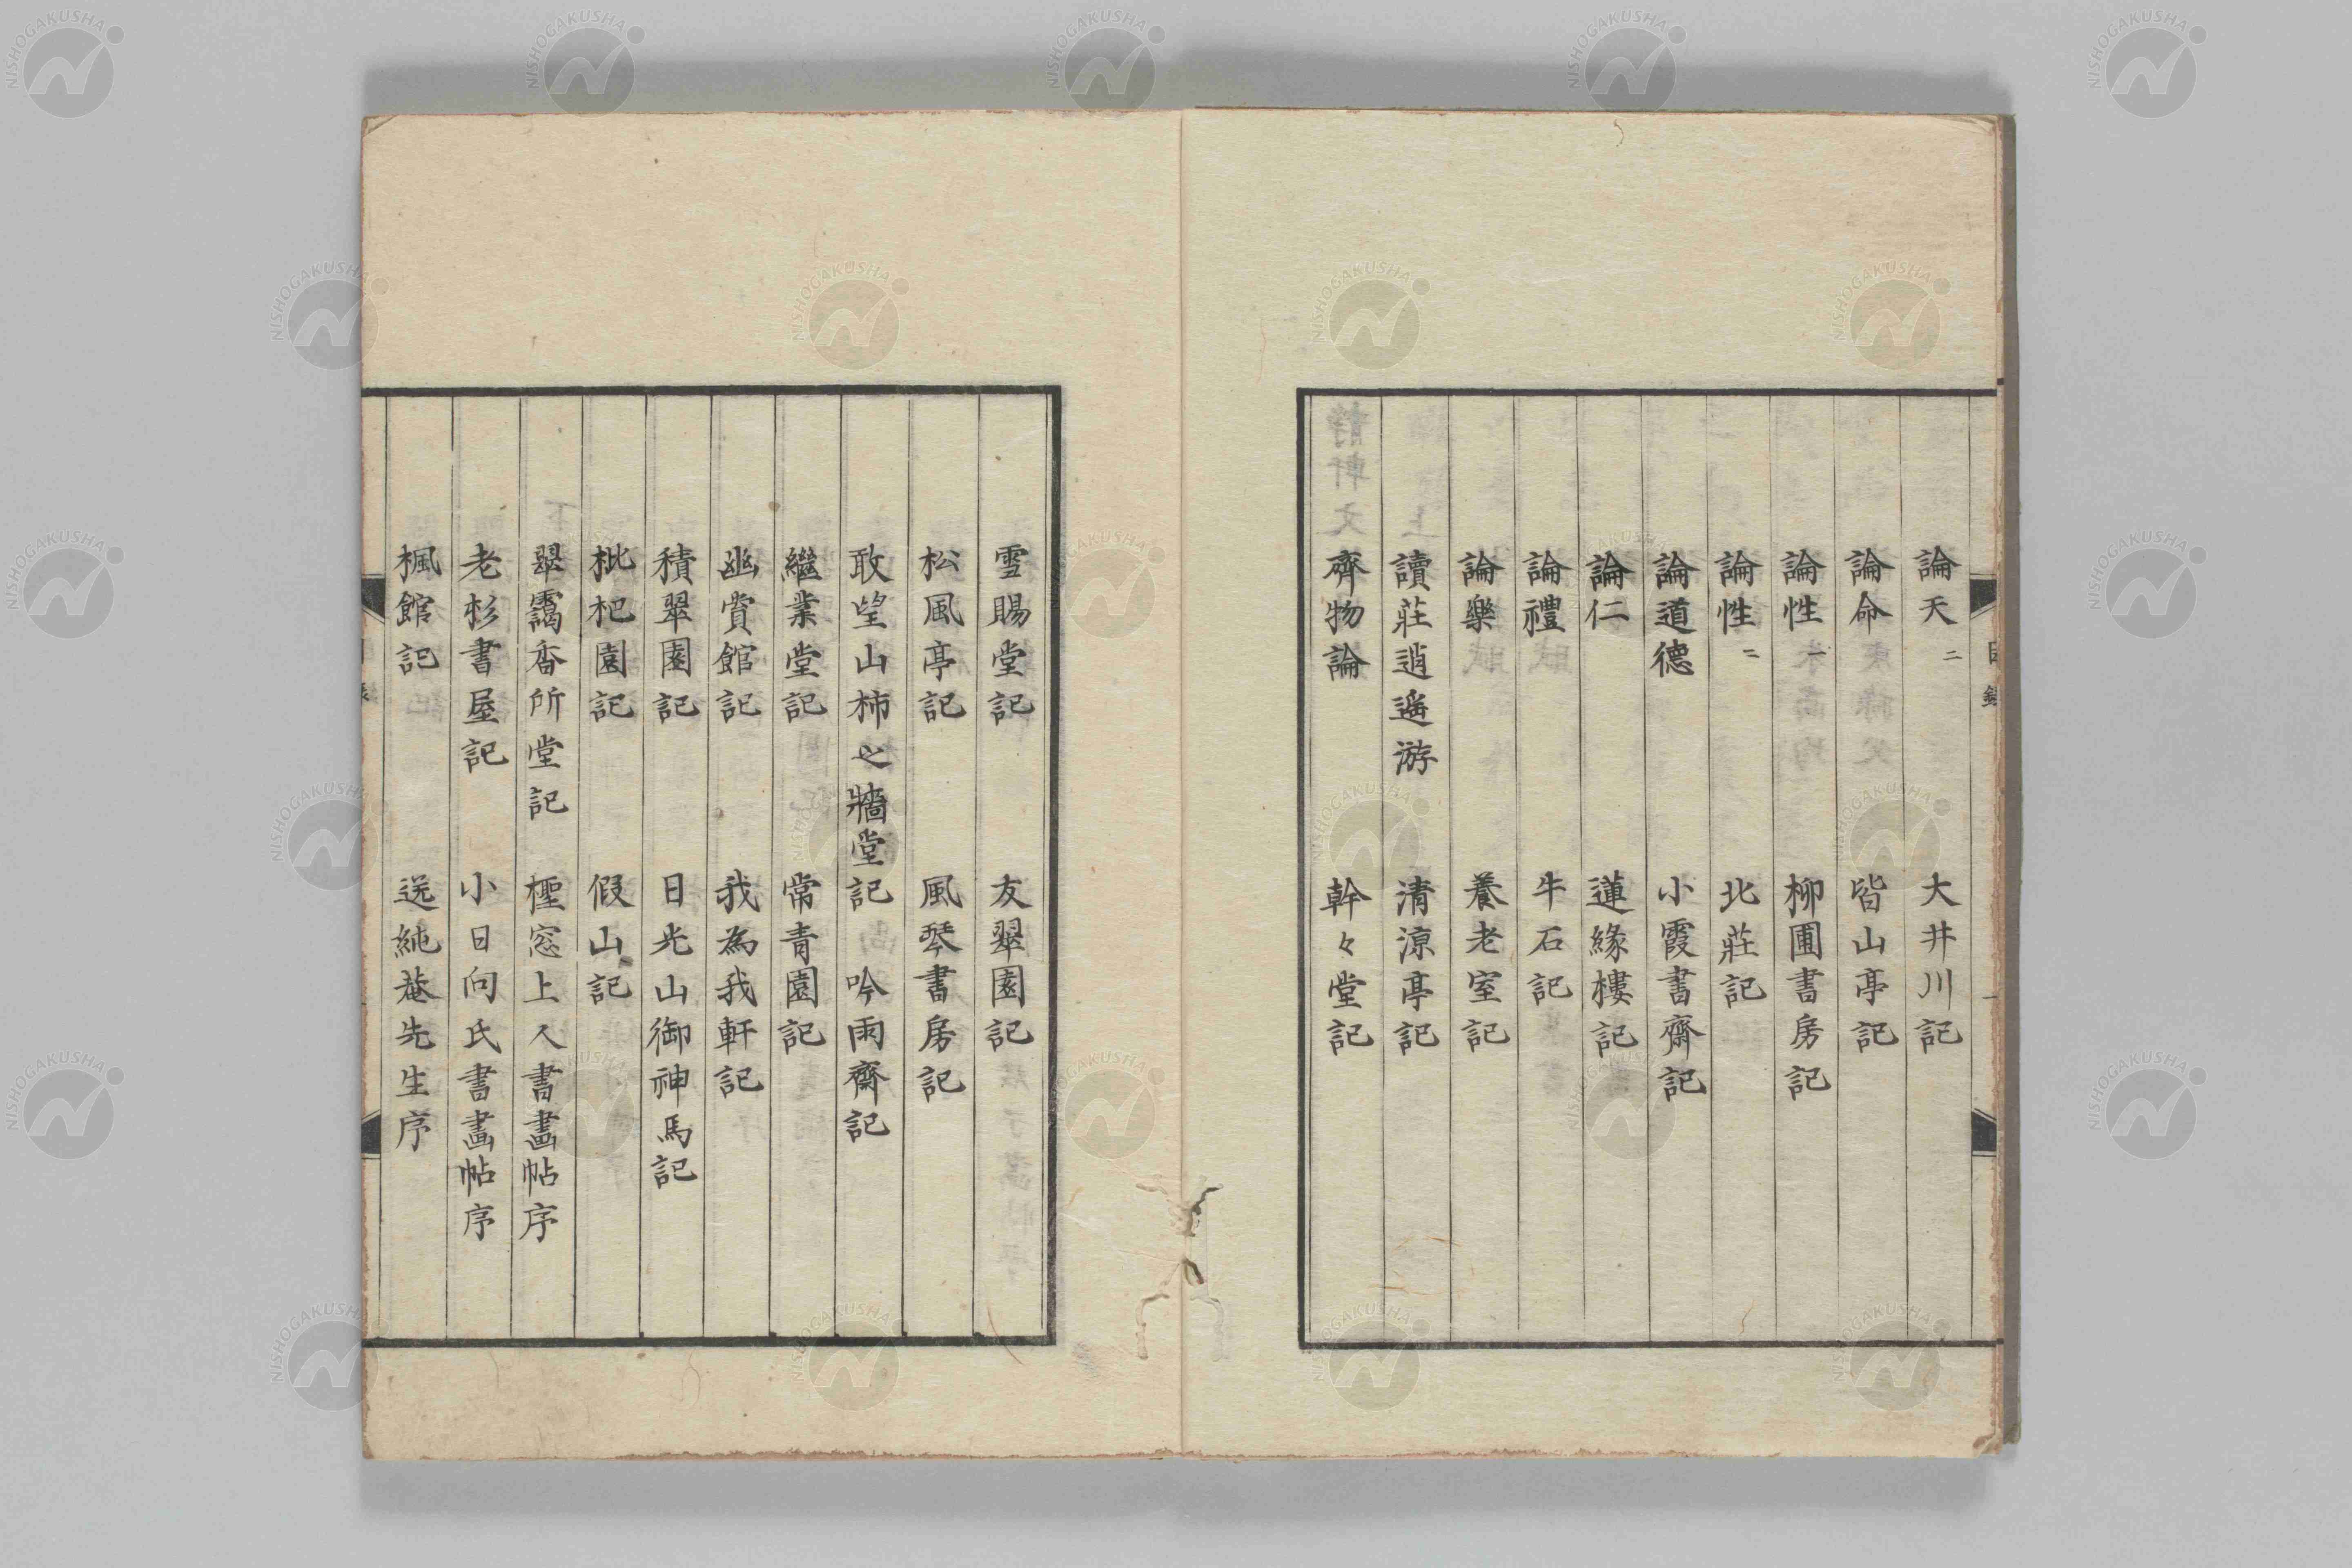 論天二 大井川記
論命 皆山亭記
論性一 柳圃書房記
論性二 北莊記
論道德 小霞書齋記
論仁 蓮緣樓記
論禮 牛石記
論樂 養老室記
讀莊逍遙游 清涼亭記
齊物論 幹々堂記
雪賜堂記 友翠園記
松風亭記 風琴書房記
敢望山柿之牆堂記 吟雨齋記
繼業堂記 常青園記
幽賞館記 我為我軒記
積翠園記 日光山御神馬記
枇杷園記 假山記
翠靄香所堂記 檉窓上人書畫帖序
老杉書屋記 小日向氏書畫帖序
楓館記 送純菴先生序
NISHOGAKUSHA